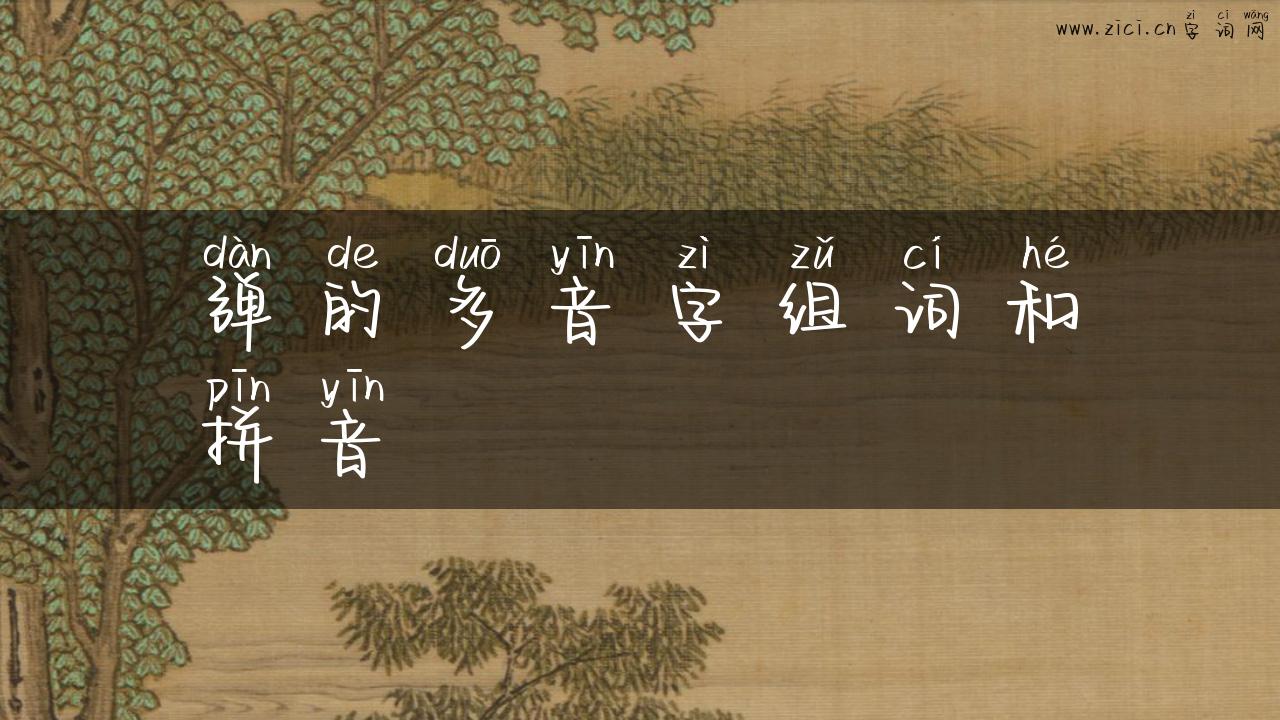 zì cí wǎng
www.zici.cn字词网
dàn de duō yīn zì zǔ cí hé
弹的多音字组词和
pīn yīn
拼音